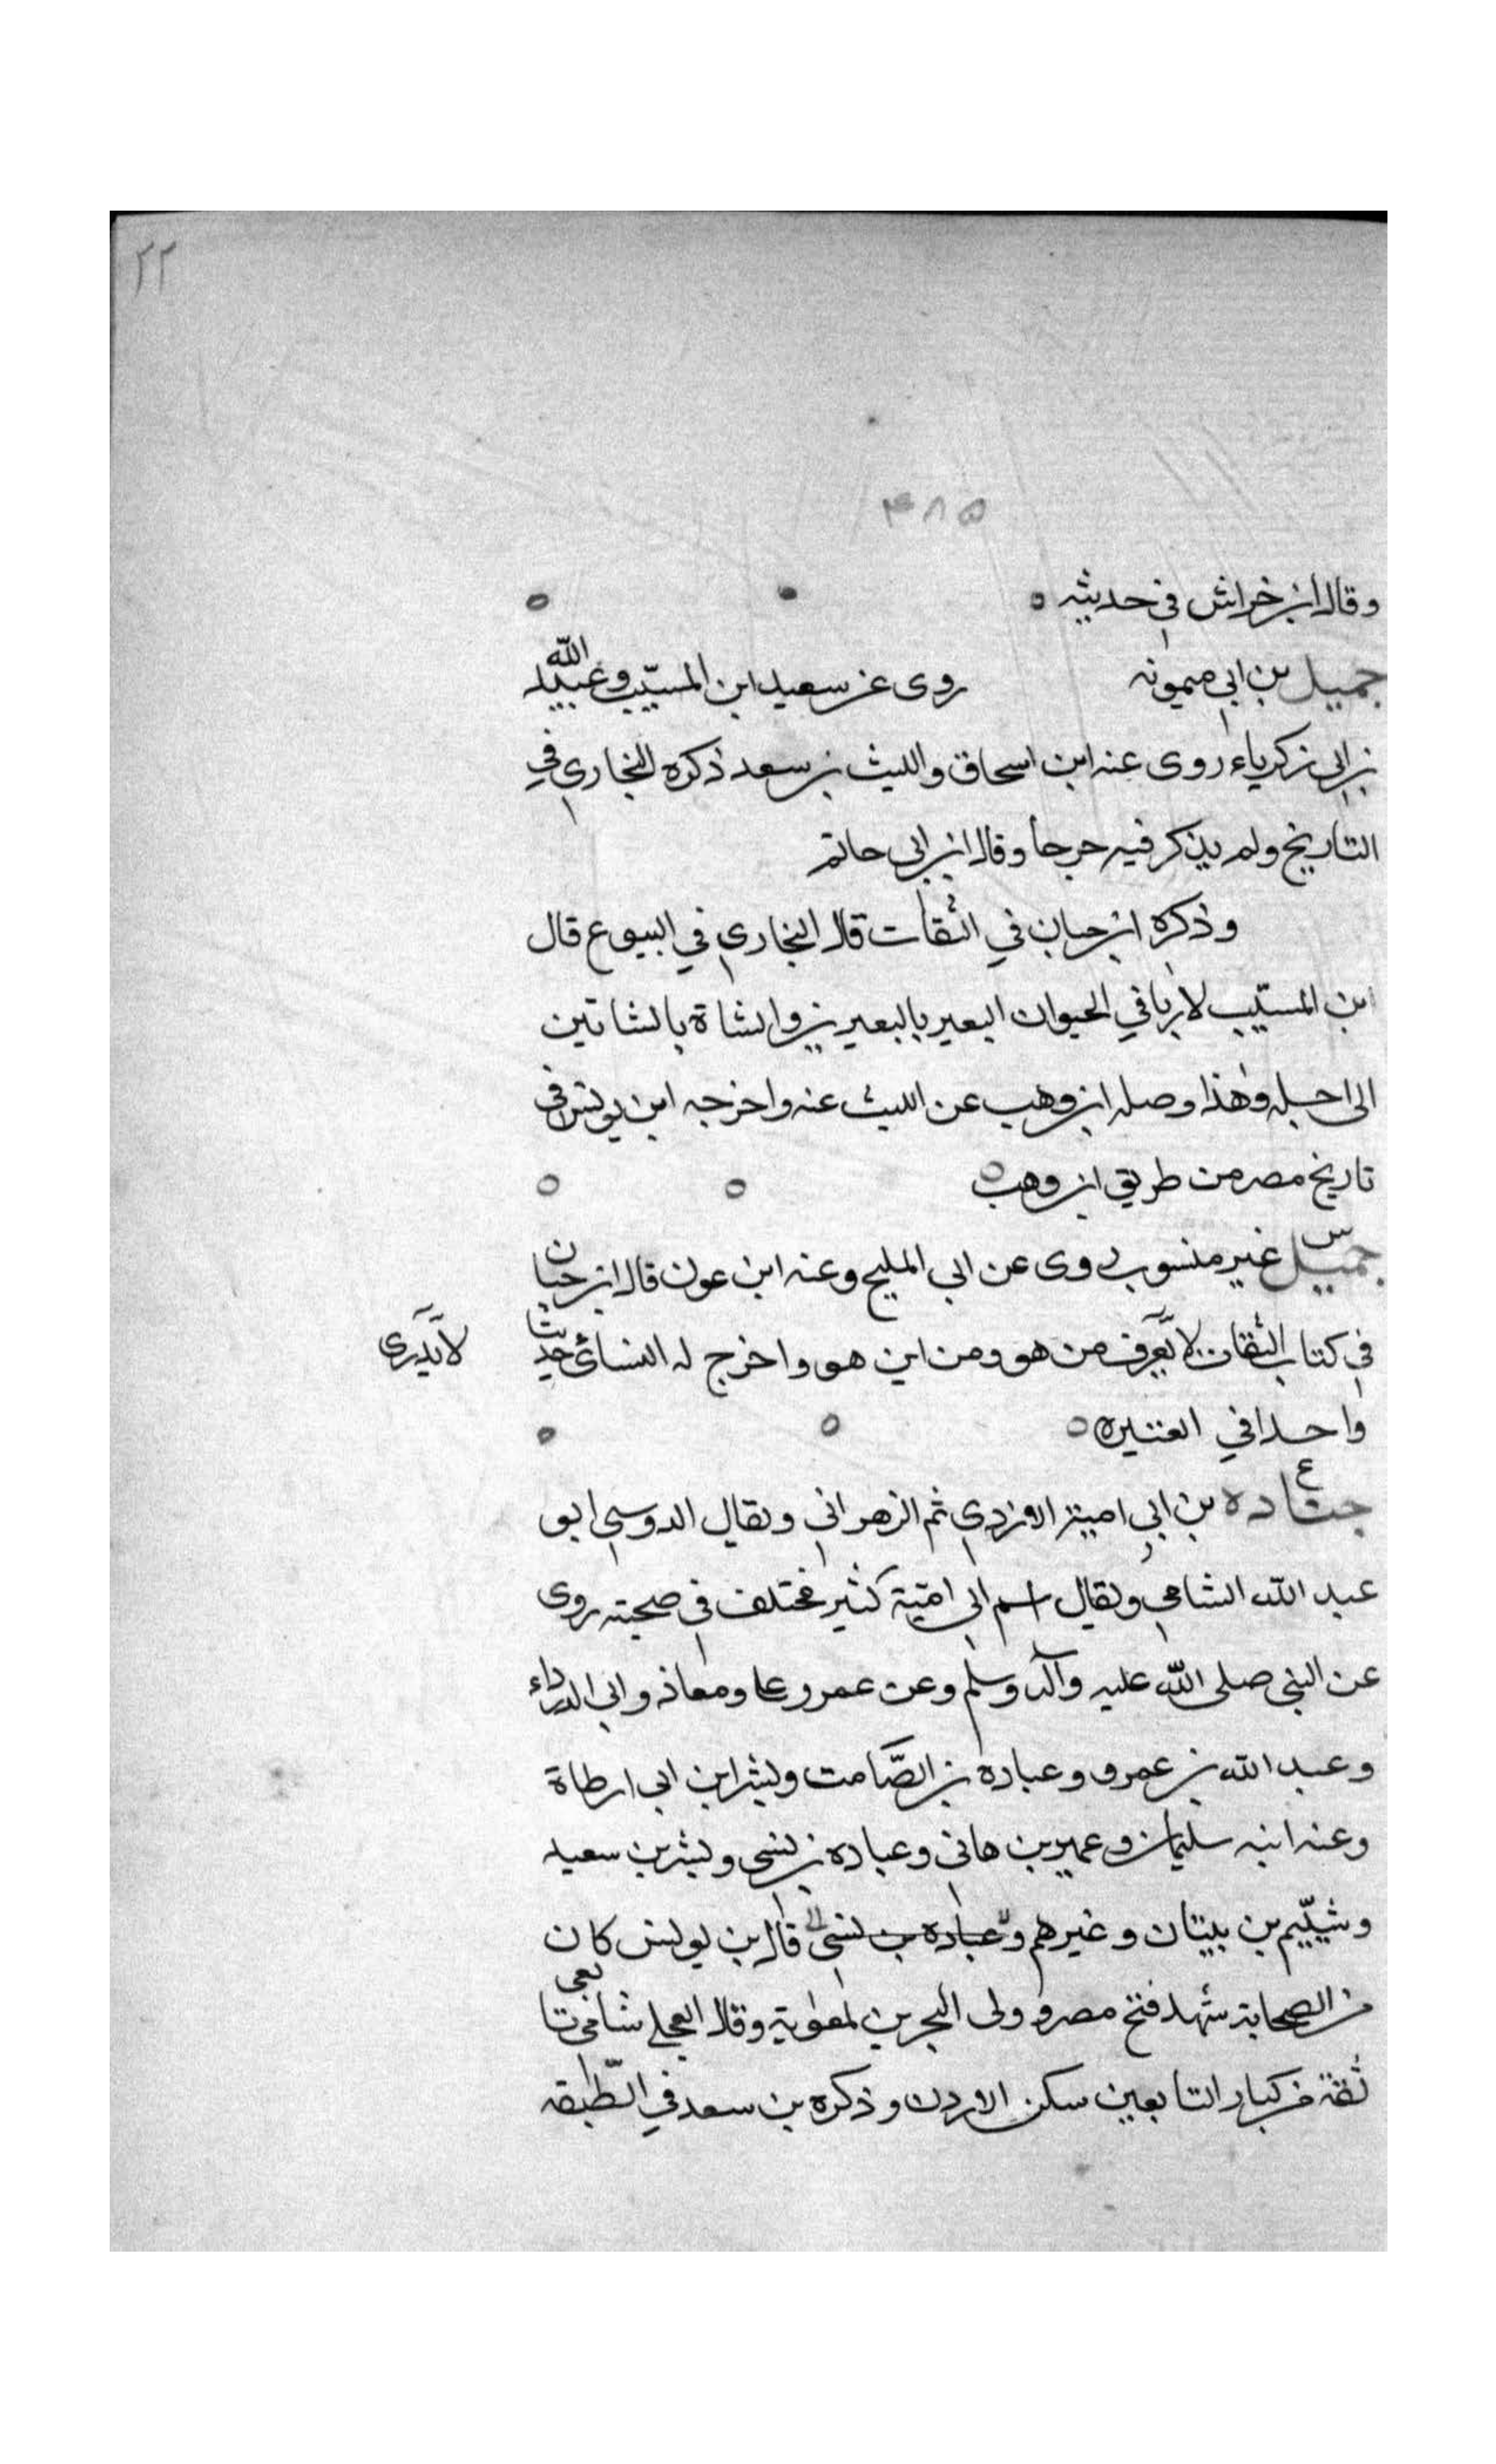 ٢٢
٣٨٥
وقال ابن خراش في حديثه
جميل بن ابي ميمونه روى عن سعيد ابن المسيّب وعبيد الله
بن ابي زكرياء روى عنه ابن اسحاق والليث بن سعد ذكره البخاري في
التاريخ ولم يذكر فيه جرحا وقال ابن ابي حاتم
وذكره ابن حبان في الثقات قال البخاري في البيوع قال
ابن المسيّب لا ربا في الحيوان البعير بالبعيرين والشاة بالشاتين
الى اجل وهذا وصله ابن وهب عن الليث عنه واخرجه ابن يونس في
تاريخ مصر من طريق ابن وهب
س
جميل غير منسوب روى عن ابي المليح وعنه ابن عون قال ابن حبان
في كتاب الثقات لا يعرف من هو ومن اين هو واخرج له النسائي حديثا
لا يدرى
واحدا في العتيره
ع
جناده بن ابي امية الازدي ثم الزهراني ويقال الدوسي ابو
عبد الله الشامي ويقال اسم ابي اميّة كثير مختلف في صحبته روى
عن النبي صلى الله عليه وآله وسلم وعن عمر وعلي ومعاذ وابي الدرداء
وعبد الله بن عمرو وعباده بن الصّامت وبشر ابن ابي ارطاة
وعنه ابنه سليمان وعمير بن هاني وعباده بن نسي وبشر بن سعيد
وشيّيم بن بيتان وغيرهم وعباده بن نسي قال بن يونس كان
من الصحابة شهد فتح مصر وولى البحرين لمعوية وقال العجلي شامي تابعي
ثقة من كبار التابعين سكن الاردن وذكره بن سعد في الطّبقه